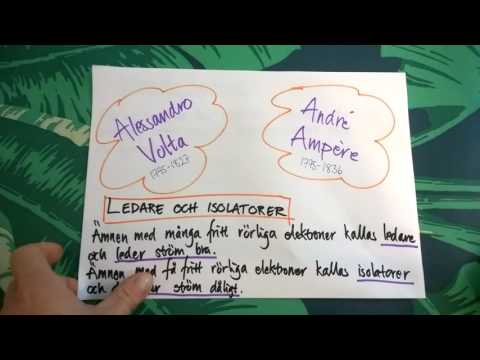 Alessandro
Volta
1745-1827
André
Ampère
1775-1836
LEDARE OCH ISOLATORER
"Ämnen med många fritt rörliga elektroner kallas ledare
och leder ström bra.
Ämnen med få fritt rörliga elektroner kallas isolatorer
och ström dåligt.